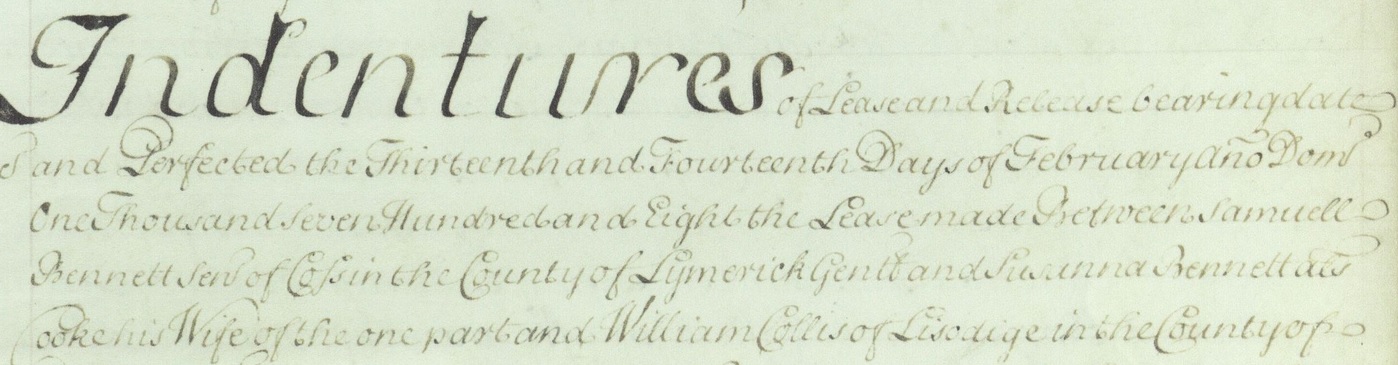 Indentures of Lease and Release bearing date
and Perfected the Thirteenth and Fourteenth Days of February Año Dom̃
One Thousand Seven Hundred and Eight the Lease made Between Samuell
Bennett Senr of Coss in the County of Lymerick Gentt and Susanna Bennett als
Cooke his Wife of the one part and William Collis of Lisodige in the County of